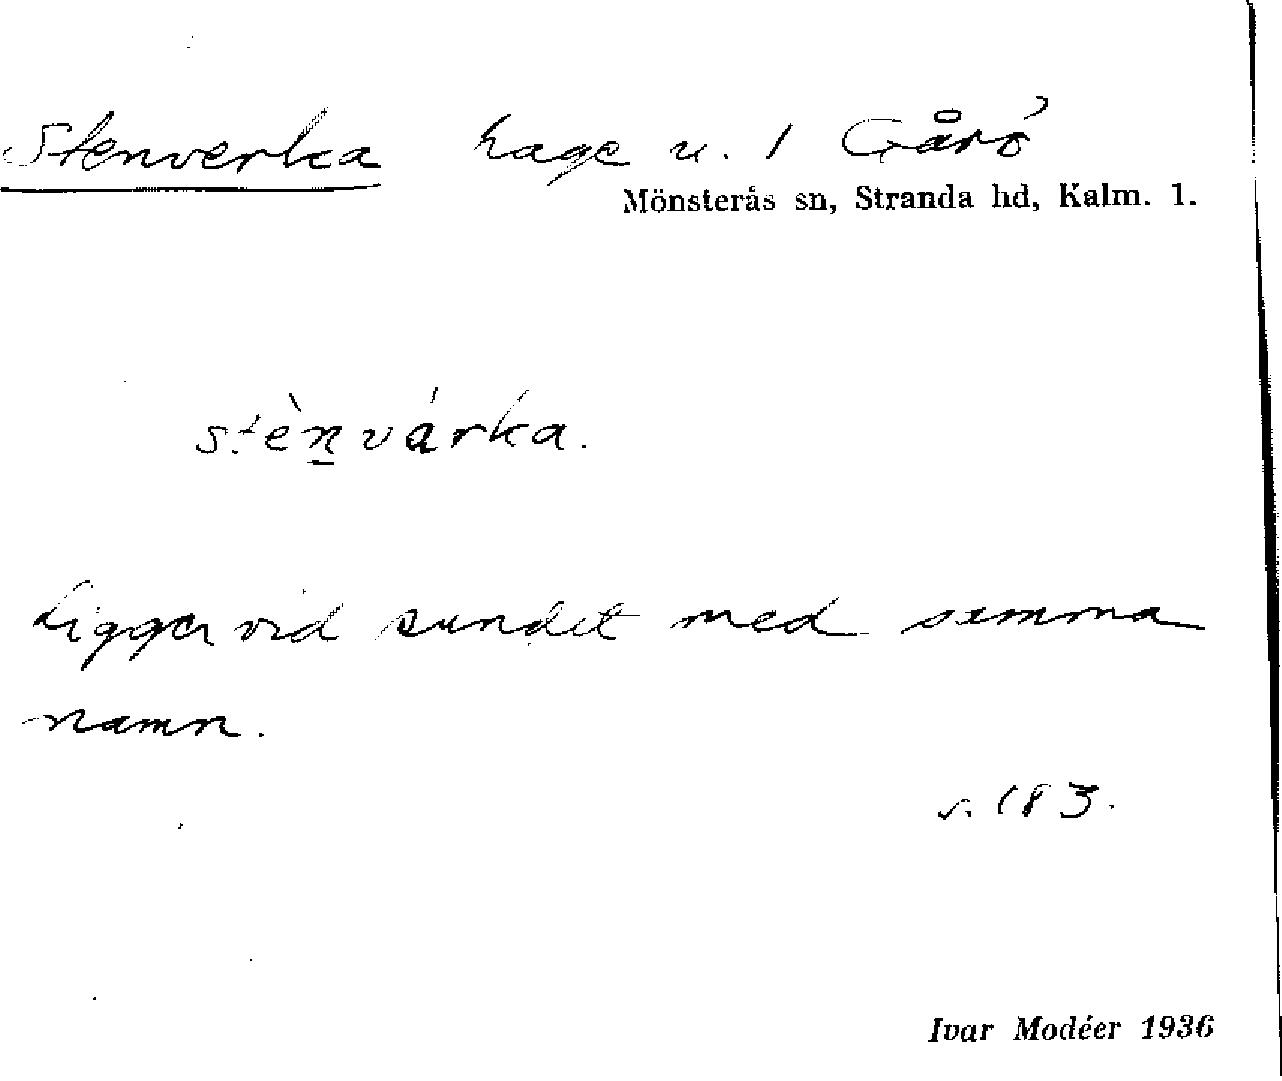 Stenverka hage u. 1 Gårö
Mönsterås sn, Stranda hd, Kalm. l.
stènvárka.
Ligger vid sundet med samma
namn.
s. 183.
Ivar Modéer 1936